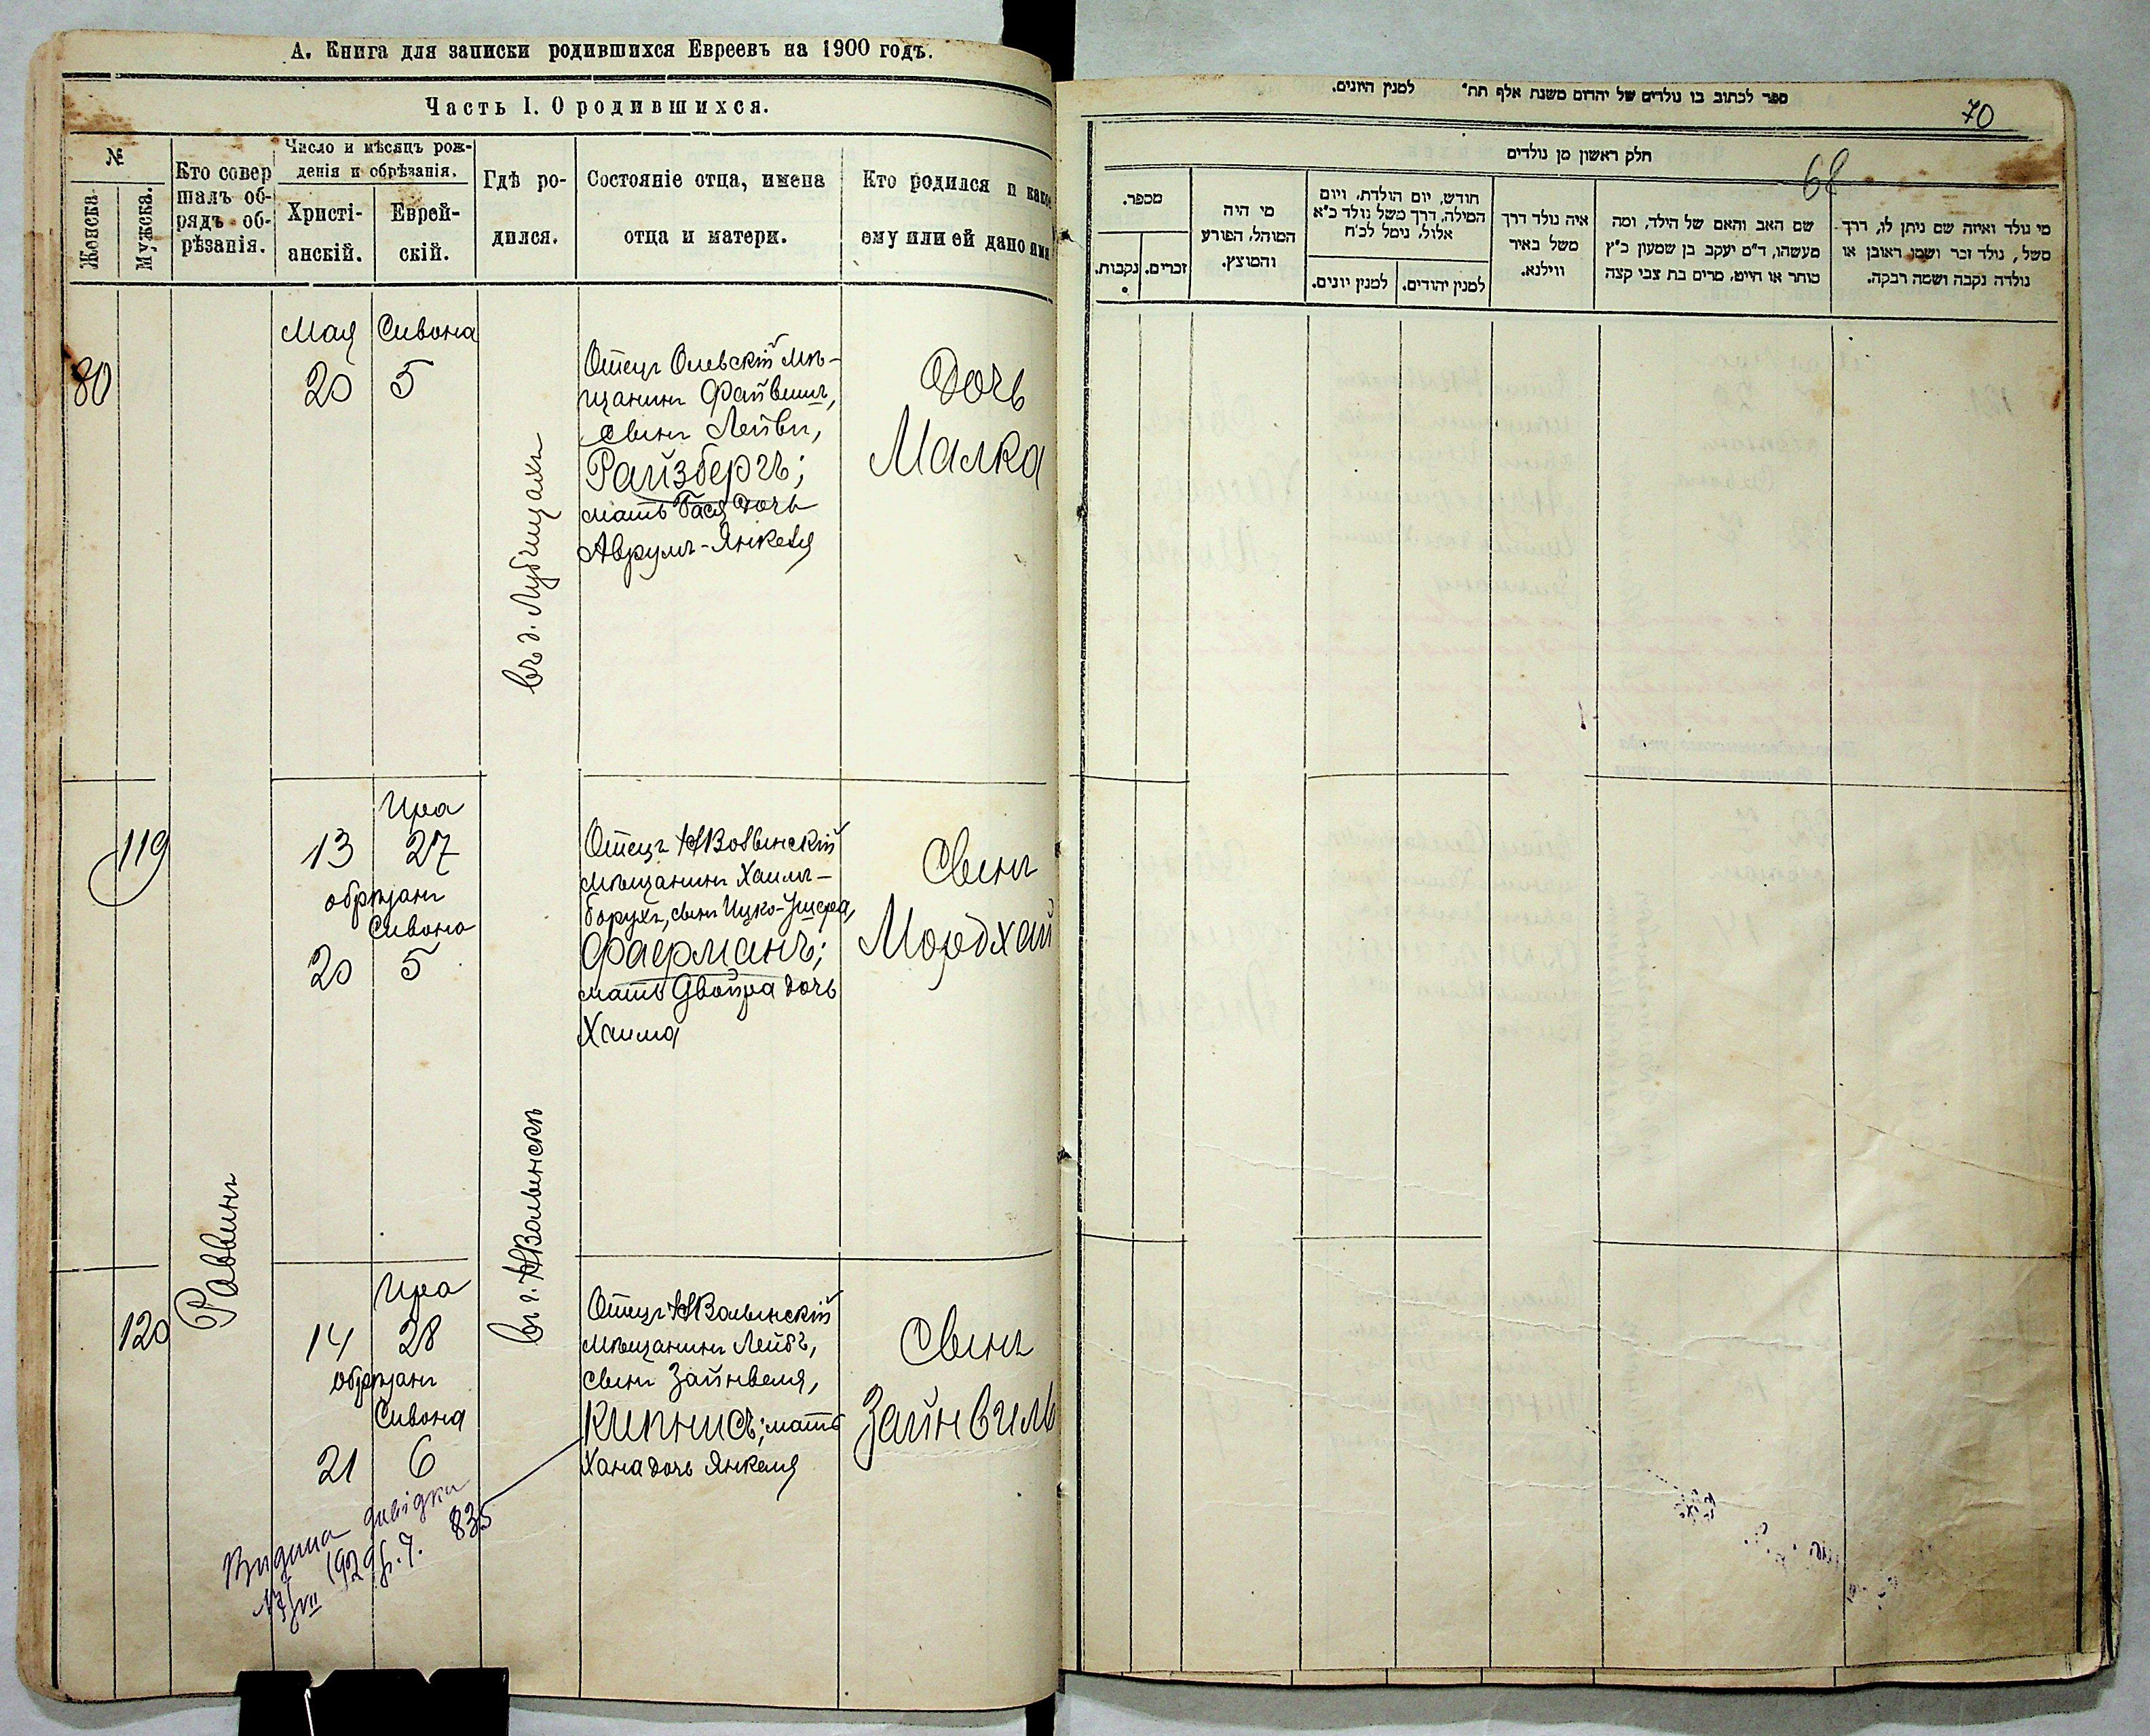 А. Книга для записки родившихся Евреевъ на 1900 годъ.
Часть I. О родившихся.
№
Женска
Мужска.
Кто совер
шалъ об-
рядъ об-
рѣзанія.
Число и мѣсяцъ рож-
денія и обрѣзанія.
Христі-
анскій.
Еврей-
скій.
Гдѣ ро-
дился.
Состояніе отца, имена
отца и матери.
Кто родился и како
ему или ей дано имя
80
Мая Сивона
20 5
въ д. Лубчицахъ
Отецъ Олевскій мѣ-
щанинъ Файвишъ,
сынъ Лейбы,
Райзбергъ;
мать Бася дочь
Аврумъ-Янкеля
Дочь
Малка
119
Ира
13 27
обрѣзанъ
Сивона
20 5
Отецъ НВолынскій
мѣщанинъ Хаимъ-
Борухъ, сынъ Ицко-Ушера,
Фаерманъ;
мать Двойра дочь
Хаима
Сынъ
Мордхай
120
Раввинъ
Ира
14 28
обрѣзанъ
Сивона
21 6
въ г. НВолынскѣ
Отецъ НВолынскій
мѣщанинъ Лейбъ,
сынъ Зайнвеля,
Кипнисъ; мать
Хана дочь Янкеля
Сынъ
Зайнвиль
Видана довідка
17/VII 1929 р. Ч. 835
ספר לכתוב בו נולדים של יהדום משנת אלף תת" למנין היונים.
70
68
חלק ראשון מן נולדים
מספר.
נקבות.
זכרים.
מי היה
המוהל, הפורע
והמוצץ.
חודש, יום הולדת, ויום
המילה, דרך משל נולד כ"א
אלול, נימל לכ"ח
למנין יונים.
למנין יהודים.
איה נולד דרך
משל באיר
ווילנא.
שם האב והאם של הילד, ומה
מעשהו, ד"מ יעקב בן שמעון כ"ץ
סוחר או חייט, מרים בת צבי קצה
מי נולד ואיזה שם ניתן לו, דרך
משל, נולד זכר ושמו ראובן או
נולדה נקבה ושמה רבקה.